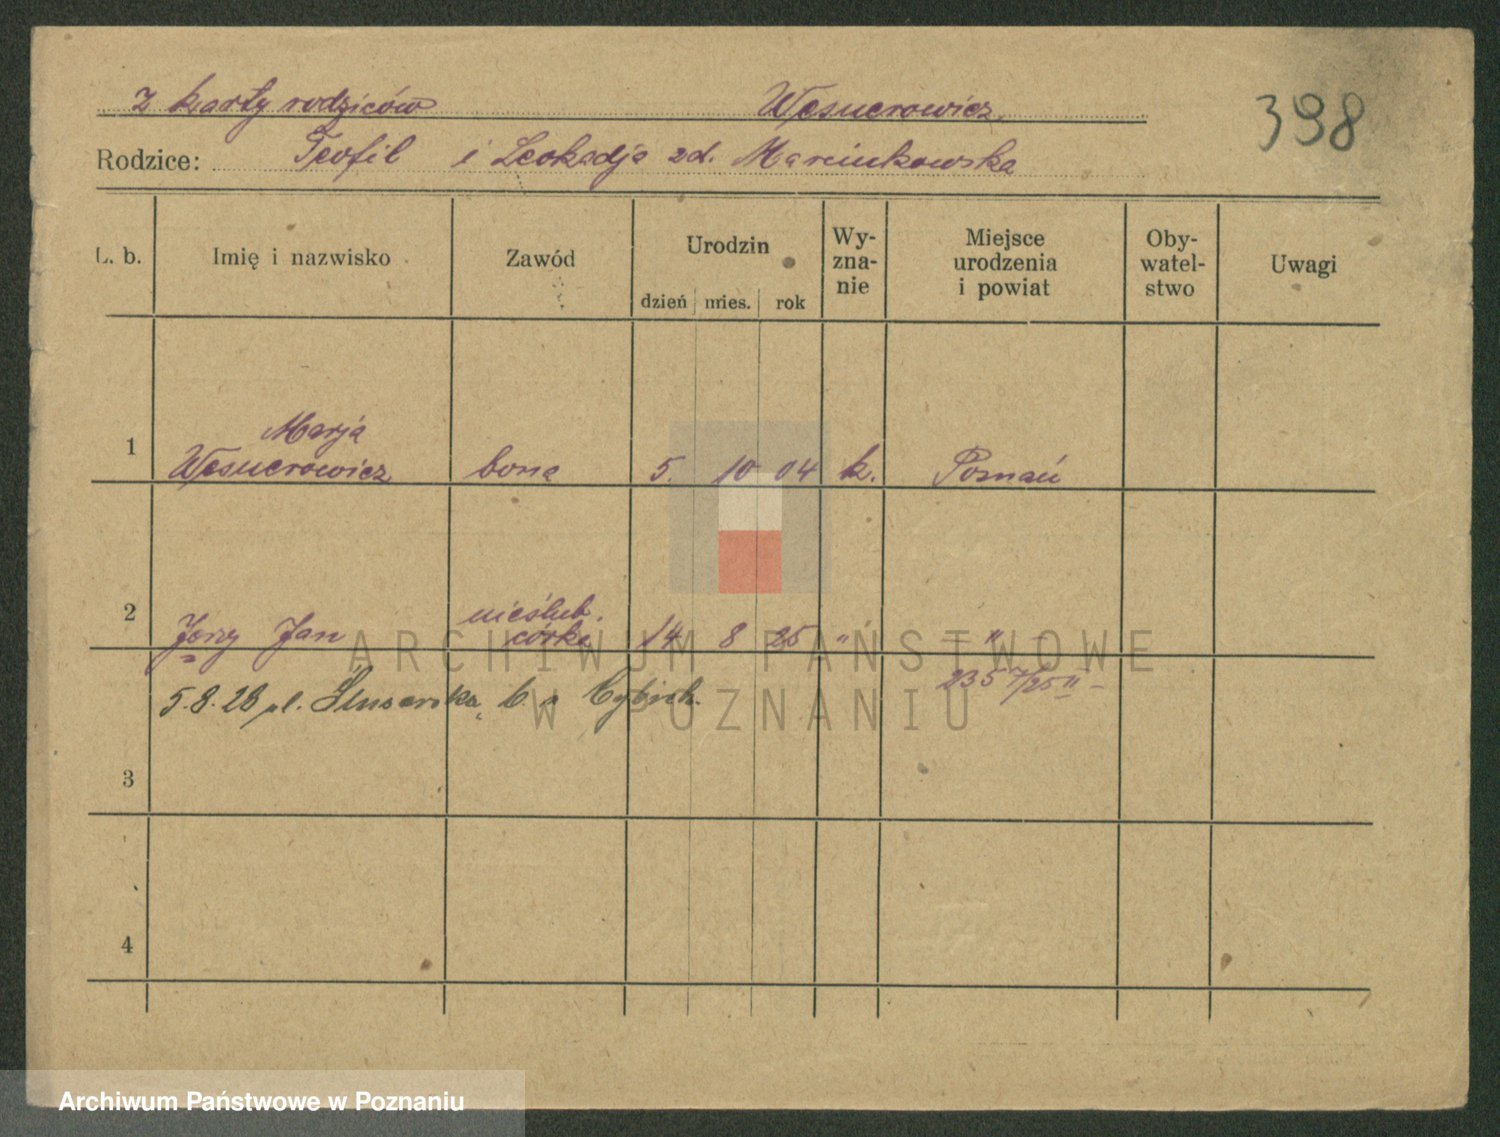 z karty rodziców Węsierowicz
398
Rodzice: Teofil i Leokadja zd. Marcinkowska
L. b. Imię i nazwisko Zawód Urodzin Wy-zna-nie Miejsce urodzenia i powiat Oby-watel-stwo Uwagi
dzień mies. rok
Marja
1 bona 5. 10 04 k. Poznań
nieślub.
2 Jerzy Jan córka 14 8 25 " — " —
5.8.28 pl.
3
4
ARCHIWUM PAŃSTWOWE
W POZNANIU
Archiwum Państwowe w Poznaniu